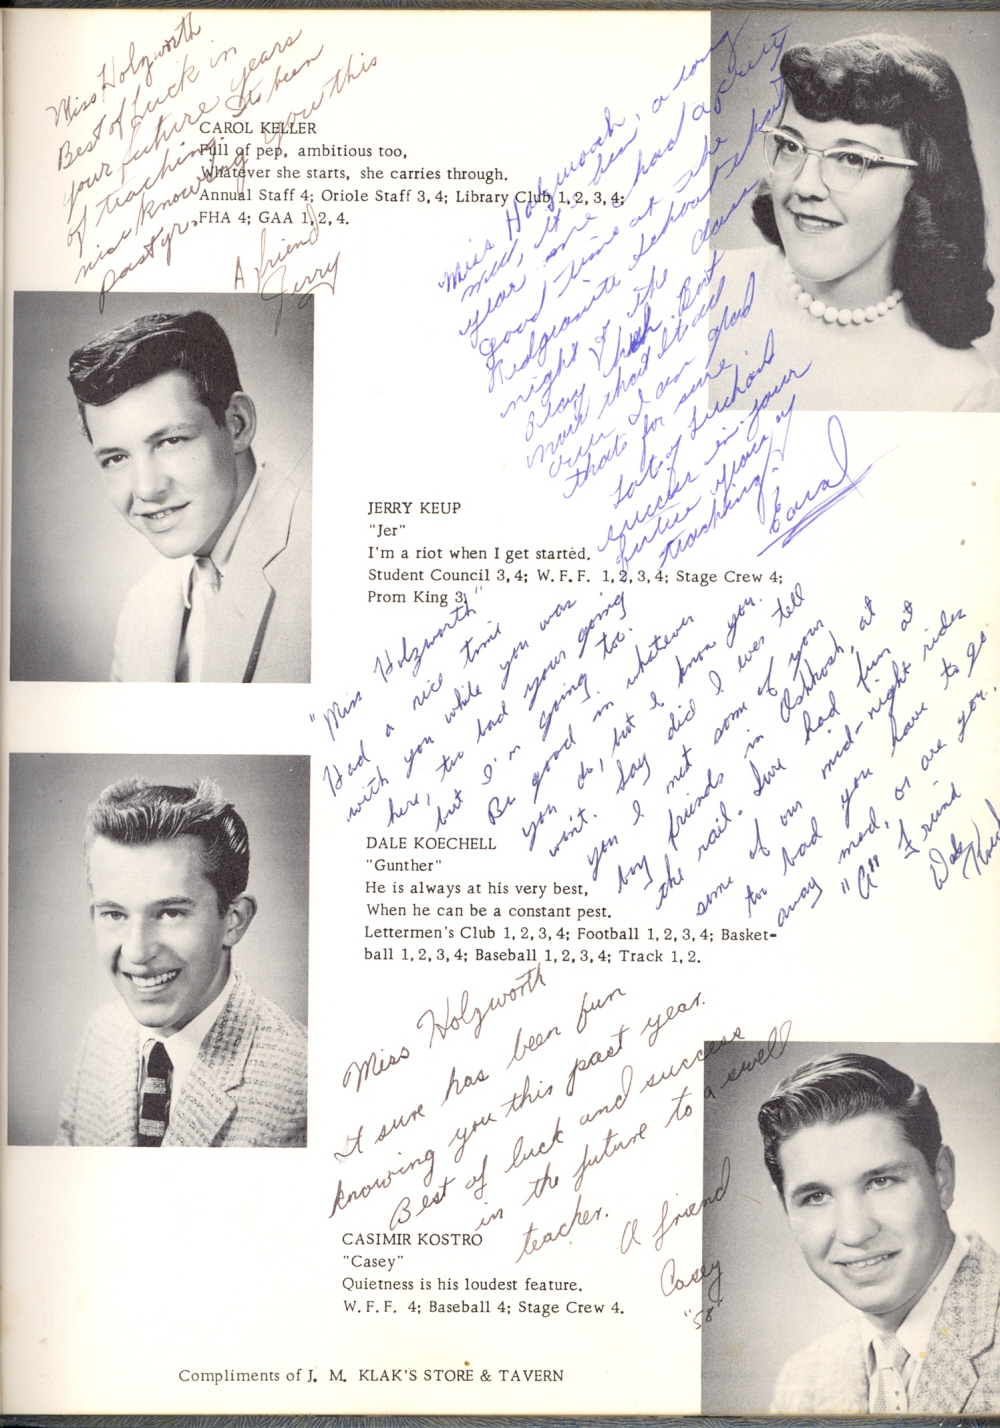 Miss Holzworth
Best of Luck in
your future years
of teaching. Its been
nice knowing you this
past yr.
A friend
Jerry
CAROL KELLER
Full of pep, ambitious too,
Whatever she starts, she carries through.
Annual Staff 4; Oriole Staff 3, 4; Library Club 1, 2, 3, 4;
FHA 4; GAA 1, 2, 4.
Miss Holzworth, a long
year
good time at the
night of the class
play
more than
over I am glad
thats for sure
Lots of luck and
success in your
future years of
teaching!
Carol
JERRY KEUP
"Jer"
I'm a riot when I get started.
Student Council 3, 4; W. F. F. 1, 2, 3, 4; Stage Crew 4;
Prom King 3.
"Miss Holzworth"
Had a nice time
with you while you was
here, too bad your going
but I'm going too.
Be good in whatever
you do, but I know you
won't. Say did I ever tell
you I met some of your
boy friends in Oshkosh, at
the rail. Sure had fun at
some of our mid-night rides
too bad you have to go
away mad, or are you.
"A" Friend
Dale
DALE KOECHELL
"Gunther"
He is always at his very best,
When he can be a constant pest.
Lettermen's Club 1, 2, 3, 4; Football 1, 2, 3, 4; Basket-
ball 1, 2, 3, 4; Baseball 1, 2, 3, 4; Track 1, 2.
Miss Holzworth
It sure has been fun
knowing you this past year.
Best of luck and success
in the future to a swell
teacher.
A friend
Casey
"58"
CASIMIR KOSTRO
"Casey"
Quietness is his loudest feature.
W. F. F. 4; Baseball 4; Stage Crew 4.
Compliments of J. M. KLAK'S STORE & TAVERN